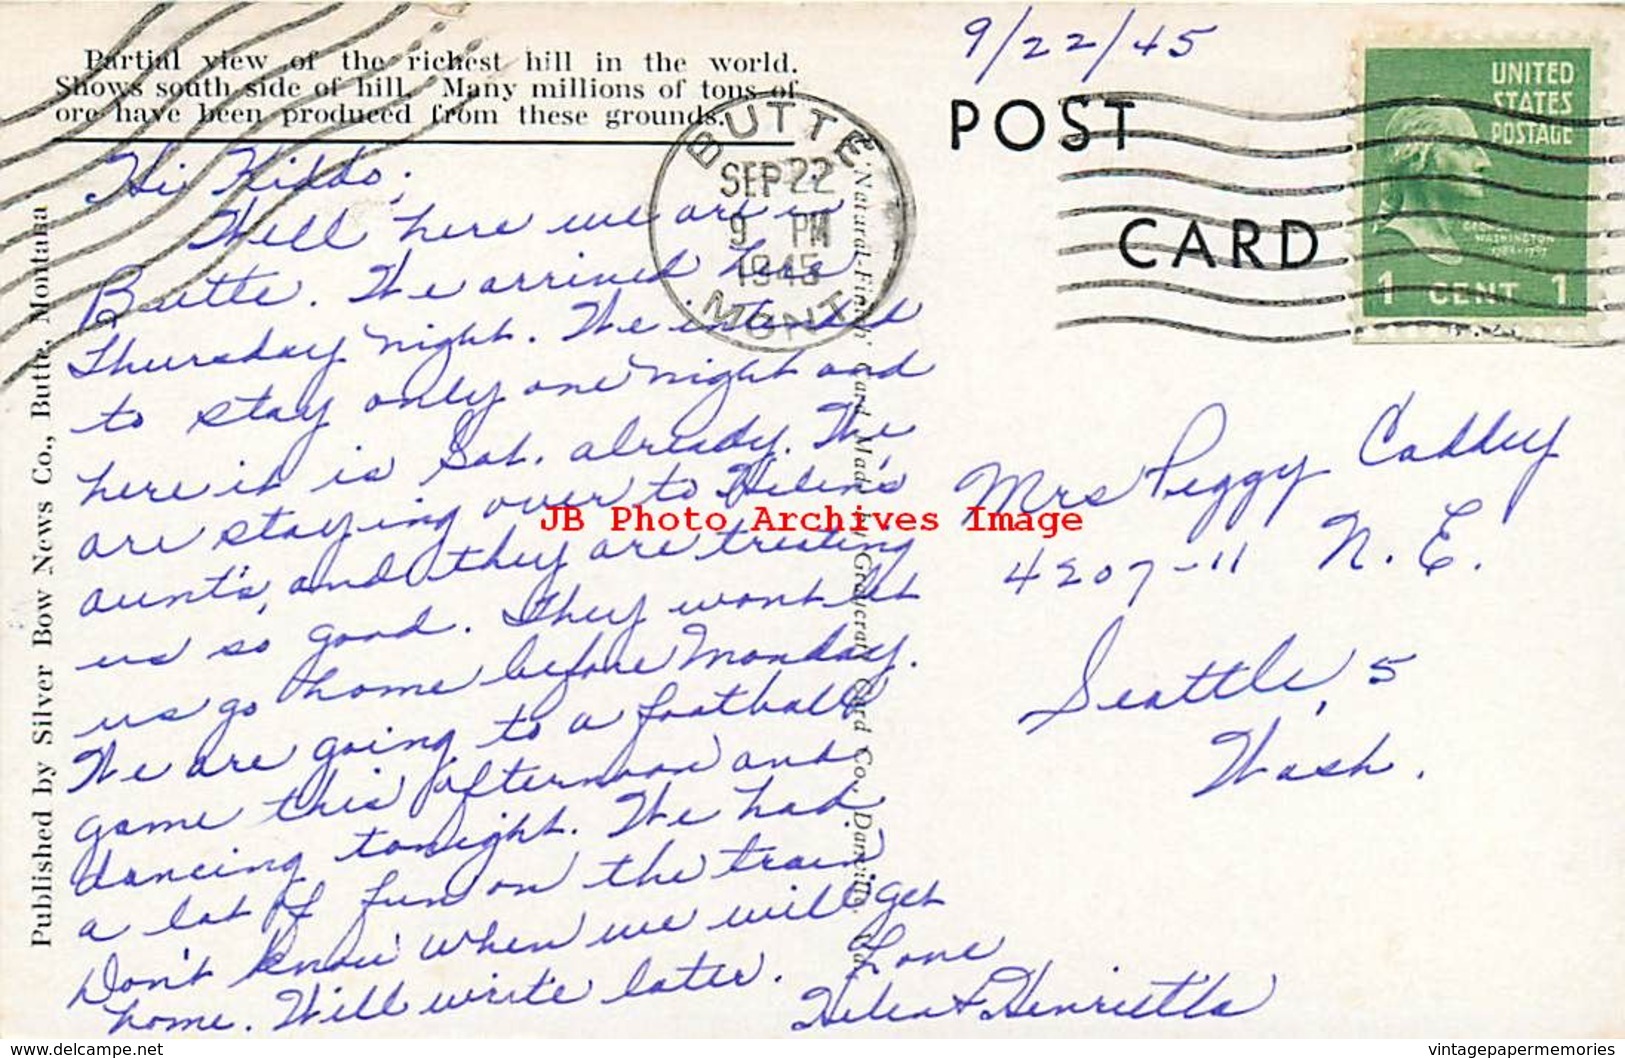 Partial view of the richest hill in the world.
Shows south side of hill. Many millions of tons of
ore have been produced from these grounds.
9/22/45
POST
CARD
UNITED
STATES
POSTAGE
GEORGE
WASHINGTON
1 CENT 1
BUTTE
SEP 22
9 PM
1945
MONT.
Hi Kiddo;
Well, here we are in
Butte. We arrived here
Thursday night. We intended
to stay only one night and
here it is Sat. already. We
are staying over to Helen's
aunt's, and they are treating
us so good. They wont let
us go home before Monday.
We are going to a football
game this afternoon and
dancing tonight. We had
a lot of fun on the train
Don't know when we will get
home. Will write later.
Love
Helen + Henrietta
Mrs Peggy Caddey
4207-11 N.E.
Seattle, 5
Wash.
Published by Silver Bow News Co., Butte, Montana
"Natural-Finish" Card Made by Graycraft Card Co., Danville, Va.
JB Photo Archives Image
www.delcampe.net
vintagepapermemories